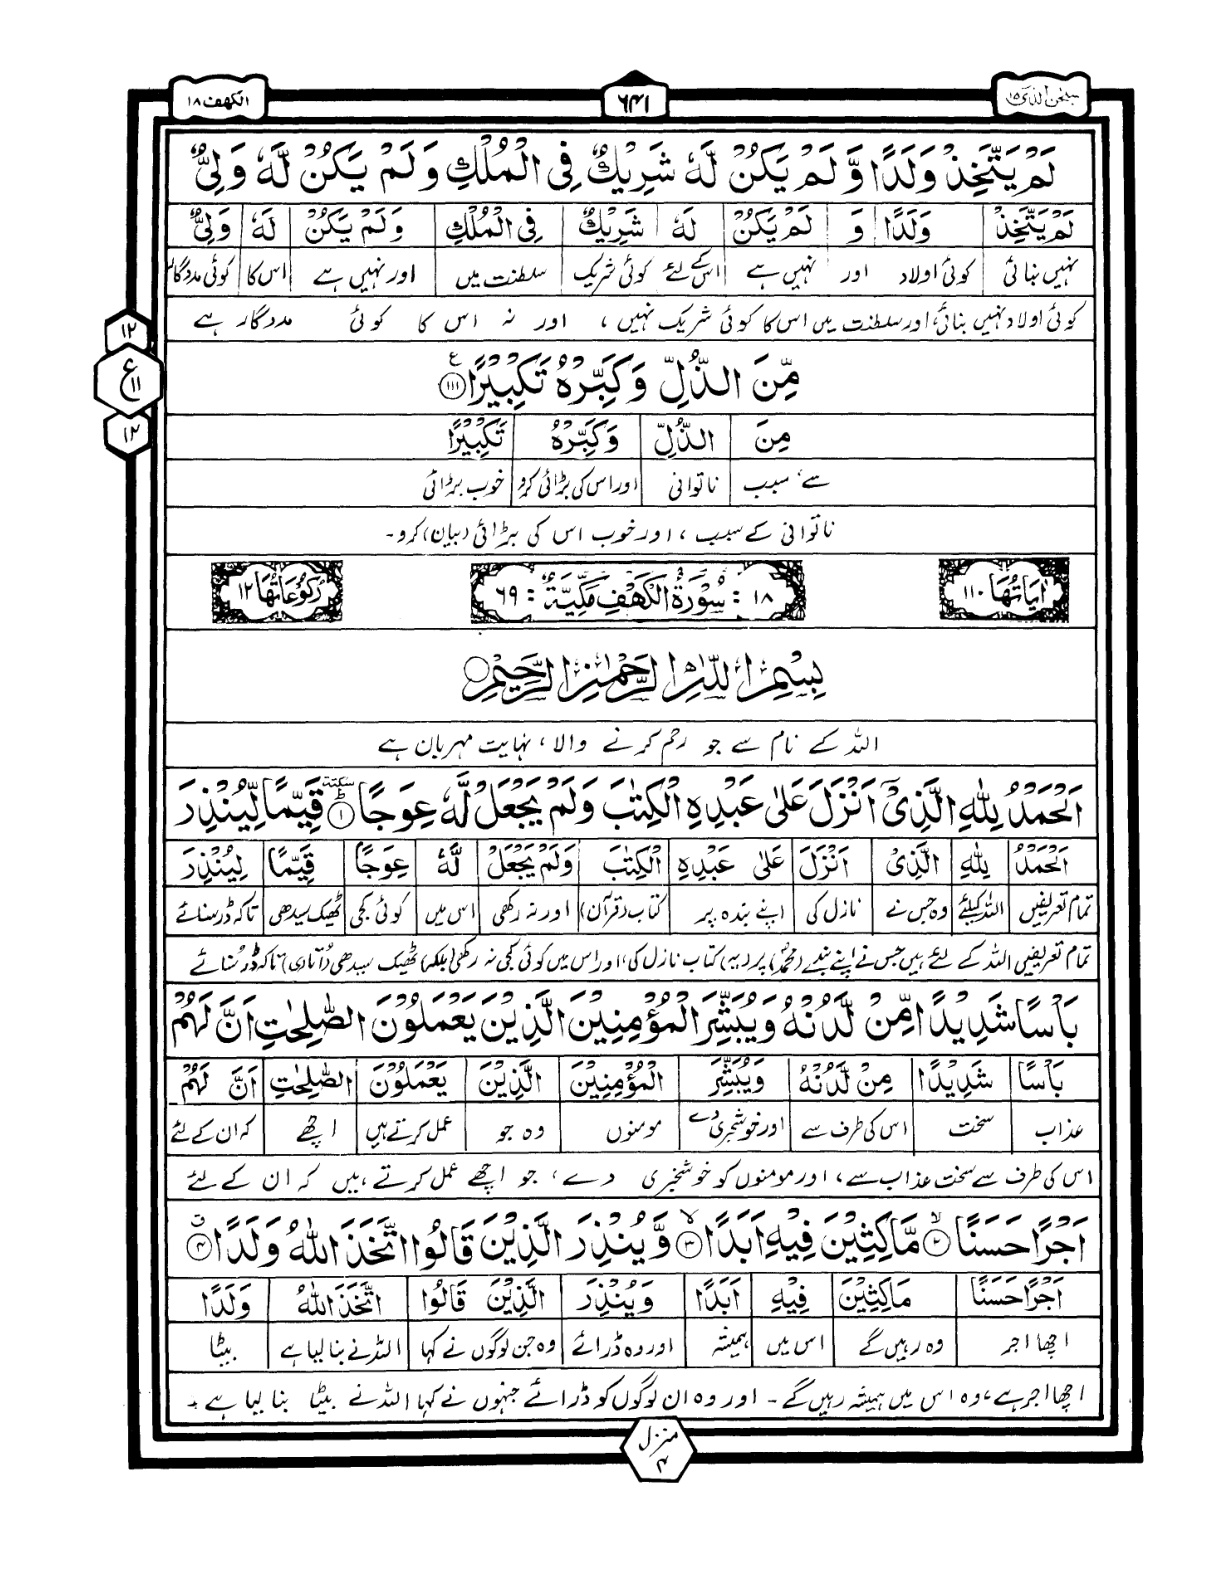 سبحٰن الذی ۱۵
۶۴۱
الکهف ۱۸
لَمْ يَتَّخِذْ وَلَدًا وَّ لَمْ يَكُنْ لَّهٗ شَرِيْكٌ فِي الْمُلْكِ وَ لَمْ يَكُنْ لَّهٗ وَلِيٌّ
لَمْ يَتَّخِذْ وَلَدًا وَ لَمْ يَكُنْ لَهٗ شَرِيْكٌ فِي الْمُلْكِ وَلَمْ يَكُنْ لَهٗ وَلِيٌّ
نہیں بنائی کوئی اولاد اور نہیں ہے اس کے لئے کوئی شریک سلطنت میں اور نہیں ہے اس کا کوئی مددگار
کوئی اولاد نہیں بنائی، اور سلطنت میں اس کا کوئی شریک نہیں، اور نہ اس کا کوئی مددگار ہے
۱۲
ع
۱۱
۱۲
مِّنَ الذُّلِّ وَ كَبِّرْهُ تَكْبِيْرًا ۝۱۱۱ ع
مِنَ الذُّلِّ وَكَبِّرْهُ تَكْبِيْرًا
سے، سبب ناتوانی اور اس کی بڑائی کرو خوب بڑائی
ناتوانی کے سبب، اور خوب اس کی بڑائی (بیان) کرو۔
اٰيَاتُهَا ۱۱۰
۱۸ : سُوْرَةُ الْكَهْفِ مَكِّيَّةٌ : ۶۹
رُكُوْعَاتُهَا ۱۲
بِسْمِ اللّٰهِ الرَّحْمٰنِ الرَّحِيْمِ
اللہ کے نام سے جو رحم کرنے والا، نہایت مہربان ہے
اَلْحَمْدُ لِلّٰهِ الَّذِيْٓ اَنْزَلَ عَلٰى عَبْدِهِ الْكِتٰبَ وَ لَمْ يَجْعَلْ لَّهٗ عِوَجًا ۝۱ سكتة قَيِّمًا لِّيُنْذِرَ
اَلْحَمْدُ لِلّٰهِ الَّذِيْٓ اَنْزَلَ عَلٰى عَبْدِهِ الْكِتٰبَ وَلَمْ يَجْعَلْ لَّهٗ عِوَجًا قَيِّمًا لِيُنْذِرَ
تمام تعریفیں اللہ کیلئے وہ جس نے نازل کی اپنے بندہ پر کتاب (قرآن) اور نہ رکھی اس میں کوئی کجی ٹھیک سیدھی تاکہ ڈر سنائے
تمام تعریفیں اللہ کے لئے ہیں جس نے اپنے بندے (محمدؐ) پر (یہ) کتاب نازل کی، اور اس میں کوئی کجی نہ رکھی (بلکہ) ٹھیک سیدھی (اُتاری) تاکہ ڈر سُنائے
بَاْسًا شَدِيْدًا مِّنْ لَّدُنْهُ وَ يُبَشِّرَ الْمُؤْمِنِيْنَ الَّذِيْنَ يَعْمَلُوْنَ الصّٰلِحٰتِ اَنَّ لَهُمْ
بَاْسًا شَدِيْدًا مِنْ لَدُنْهُ وَيُبَشِّرَ الْمُؤْمِنِيْنَ الَّذِيْنَ يَعْمَلُوْنَ الصّٰلِحٰتِ اَنَّ لَهُمْ
عذاب سخت اس کی طرف سے اور خوشخبری دے مومنوں وہ جو عمل کرتے ہیں اچھے کہ ان کے لئے
اس کی طرف سے سخت عذاب سے، اور مومنوں کو خوشخبری دے، جو اچھے عمل کرتے ہیں کہ ان کے لئے
اَجْرًا حَسَنًا ۝۲ لا مَّاكِثِيْنَ فِيْهِ اَبَدًا ۝۳ لا وَّ يُنْذِرَ الَّذِيْنَ قَالُوا اتَّخَذَ اللّٰهُ وَلَدًا ۝۴ ق
اَجْرًا حَسَنًا مَاكِثِيْنَ فِيْهِ اَبَدًا وَيُنْذِرَ الَّذِيْنَ قَالُوا اتَّخَذَ اللّٰهُ وَلَدًا
اچھا اجر وہ رہیں گے اس میں ہمیشہ اور وہ ڈرائے وہ جن لوگوں نے کہا اللہ نے بنا لیا ہے بیٹا
اچھا اجر ہے، وہ اس میں ہمیشہ رہیں گے۔ اور وہ ان لوگوں کو ڈرائے جنہوں نے کہا اللہ نے بیٹا بنا لیا ہے۔
منزل
۴